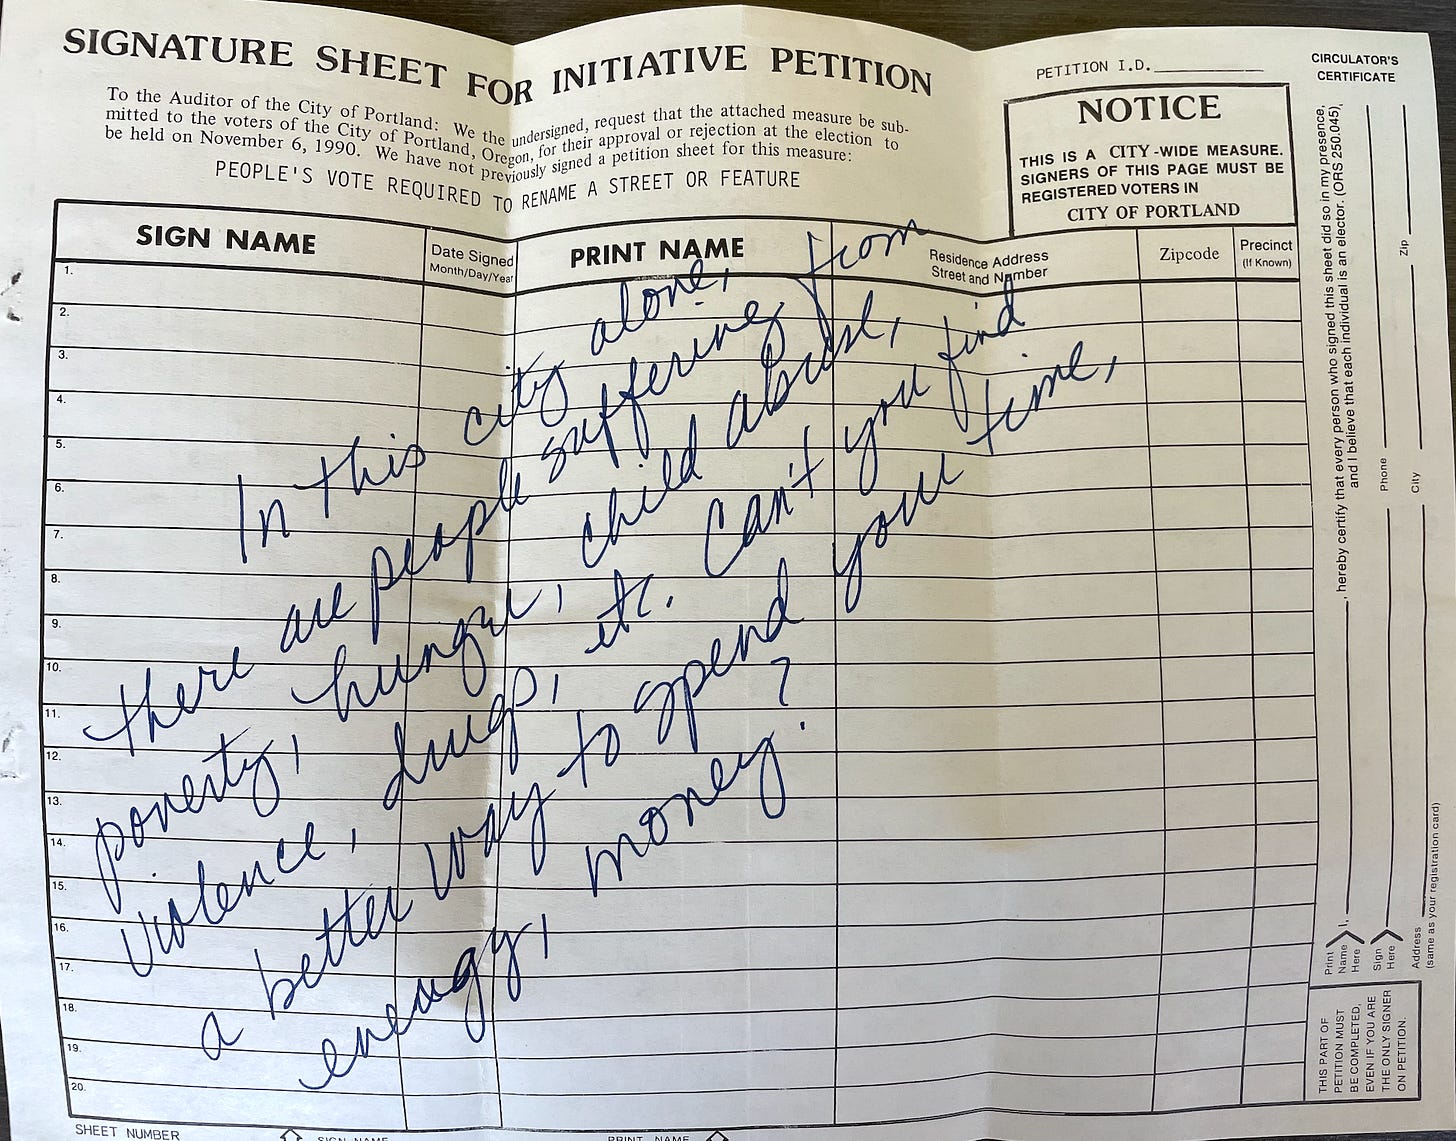 SIGNATURE SHEET FOR INITIATIVE PETITION
To the Auditor of the City of Portland: We the undersigned, request that the attached measure be sub-
mitted to the voters of the City of Portland, Oregon, for their approval or rejection at the election to
be held on November 6, 1990. We have not previously signed a petition sheet for this measure:
PEOPLE'S VOTE REQUIRED TO RENAME A STREET OR FEATURE
PETITION I.D.
NOTICE
THIS IS A CITY-WIDE MEASURE.
SIGNERS OF THIS PAGE MUST BE
REGISTERED VOTERS IN
CITY OF PORTLAND
SIGN NAME
Date Signed
Month/Day/Year
PRINT NAME
Residence Address
Street and Number
Zipcode
Precinct
(If Known)
1.
2.
3.
4.
5.
6.
7.
8.
9.
10.
11.
12.
13.
14.
15.
16.
17.
18.
19.
20.
In this city alone,
there are people suffering from
poverty, hunger, child abuse,
violence, drugs, etc. Can't you find
a better way to spend your time,
energy, money?
SHEET NUMBER
SIGN NAME
PRINT NAME
CIRCULATOR'S
CERTIFICATE
Print
Name
Here
I, , hereby certify that every person who signed this sheet did so in my presence,
and I believe that each individual is an elector. (ORS 250.045),
Sign
Here
Phone
Address
City
Zip
(same as your registration card)
THIS PART OF
PETITION MUST
BE COMPLETED,
EVEN IF YOU ARE
THE ONLY SIGNER
ON PETITION.